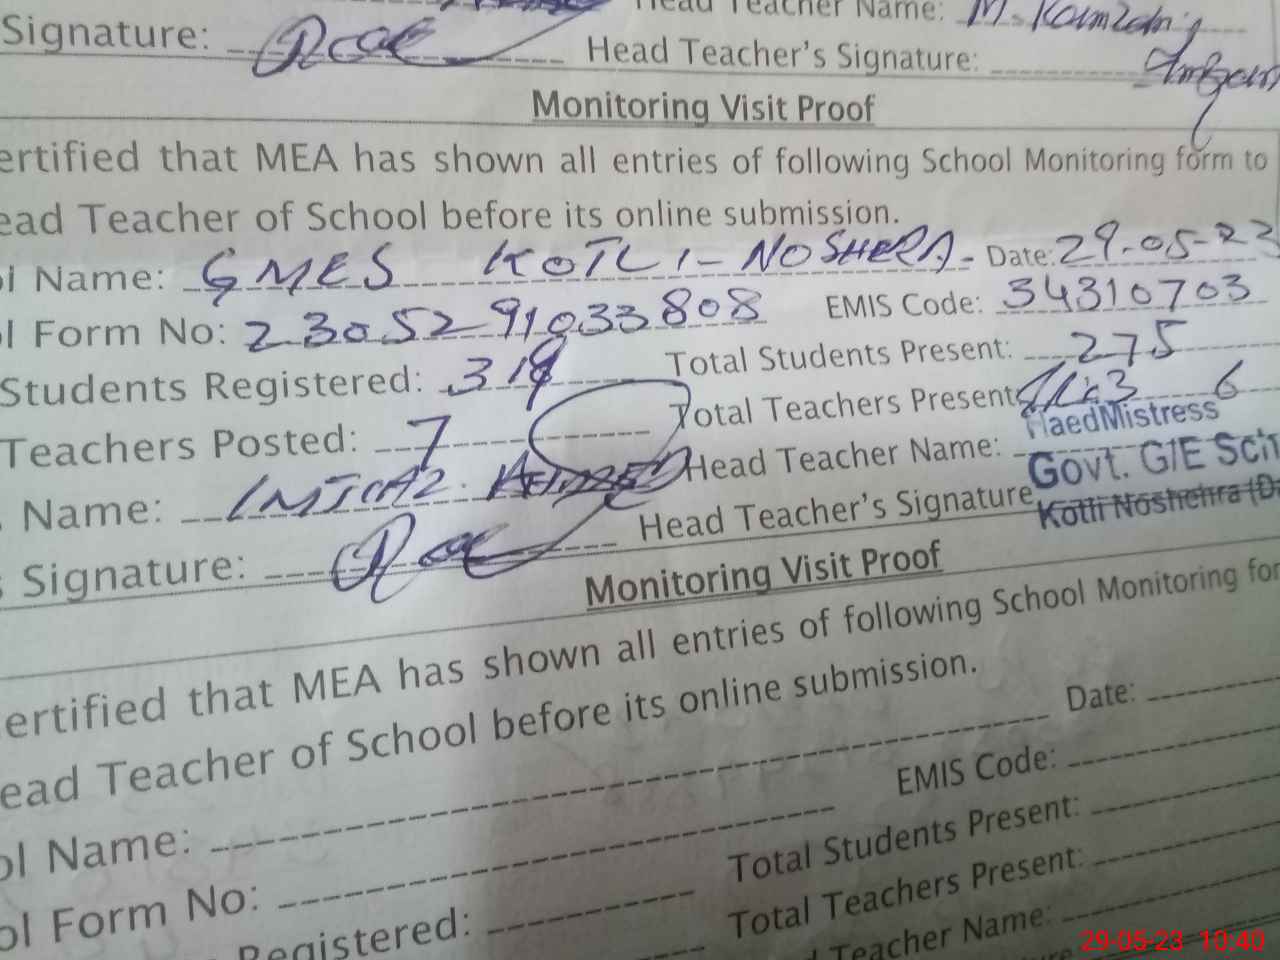 Head Teacher Name: M. Ramzan
Signature: Head Teacher's Signature:
Monitoring Visit Proof
ertified that MEA has shown all entries of following School Monitoring form to
ead Teacher of School before its online submission.
ol Name: GMES KOTLI-NOSHERA. Date: 29-05-23
ol Form No: 2305291033808 EMIS Code: 34310703
Students Registered: 319 Total Students Present: 275
Teachers Posted: 7 Total Teachers Present 6
Name: IMTIAZ AHMED Head Teacher Name: HaedMistress
Govt. G/E Sch
Signature: Head Teacher's Signature Kotli Noshehra (D
Monitoring Visit Proof
ertified that MEA has shown all entries of following School Monitoring for
ead Teacher of School before its online submission.
ol Name: Date:
ol Form No: EMIS Code:
Registered: Total Students Present:
Total Teachers Present:
d Teacher Name:
29-05-23 10:40